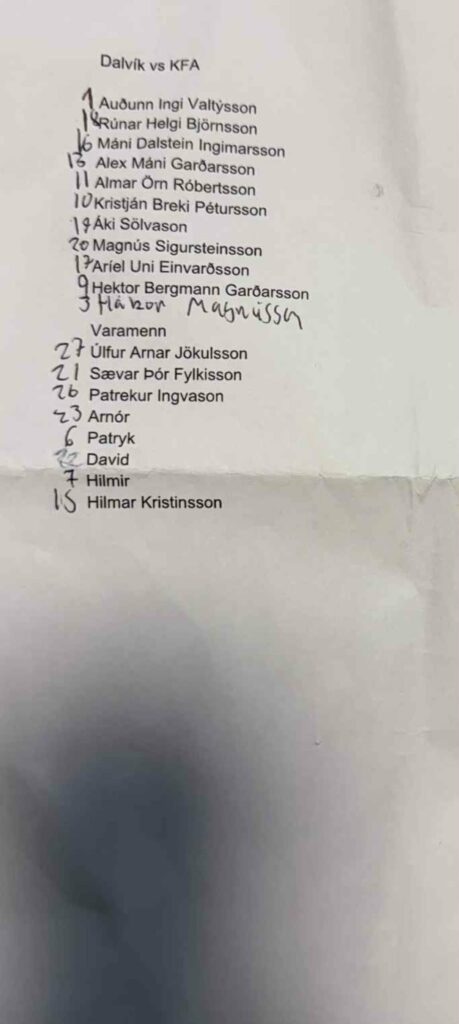 Dalvík vs KFA
1 Auðunn Ingi Valtýsson
18 Rúnar Helgi Björnsson
16 Máni Dalstein Ingimarsson
13 Alex Máni Garðarsson
11 Almar Örn Róbertsson
10 Kristján Breki Pétursson
19 Áki Sölvason
20 Magnús Sigursteinsson
17 Aríel Uni Einvarðsson
9 Hektor Bergmann Garðarsson
3 Magnússon
Varamenn
27 Úlfur Arnar Jökulsson
21 Sævar Þór Fylkisson
26 Patrekur Ingvason
23 Arnór
6 Patryk
22 David
7 Hilmir
15 Hilmar Kristinsson